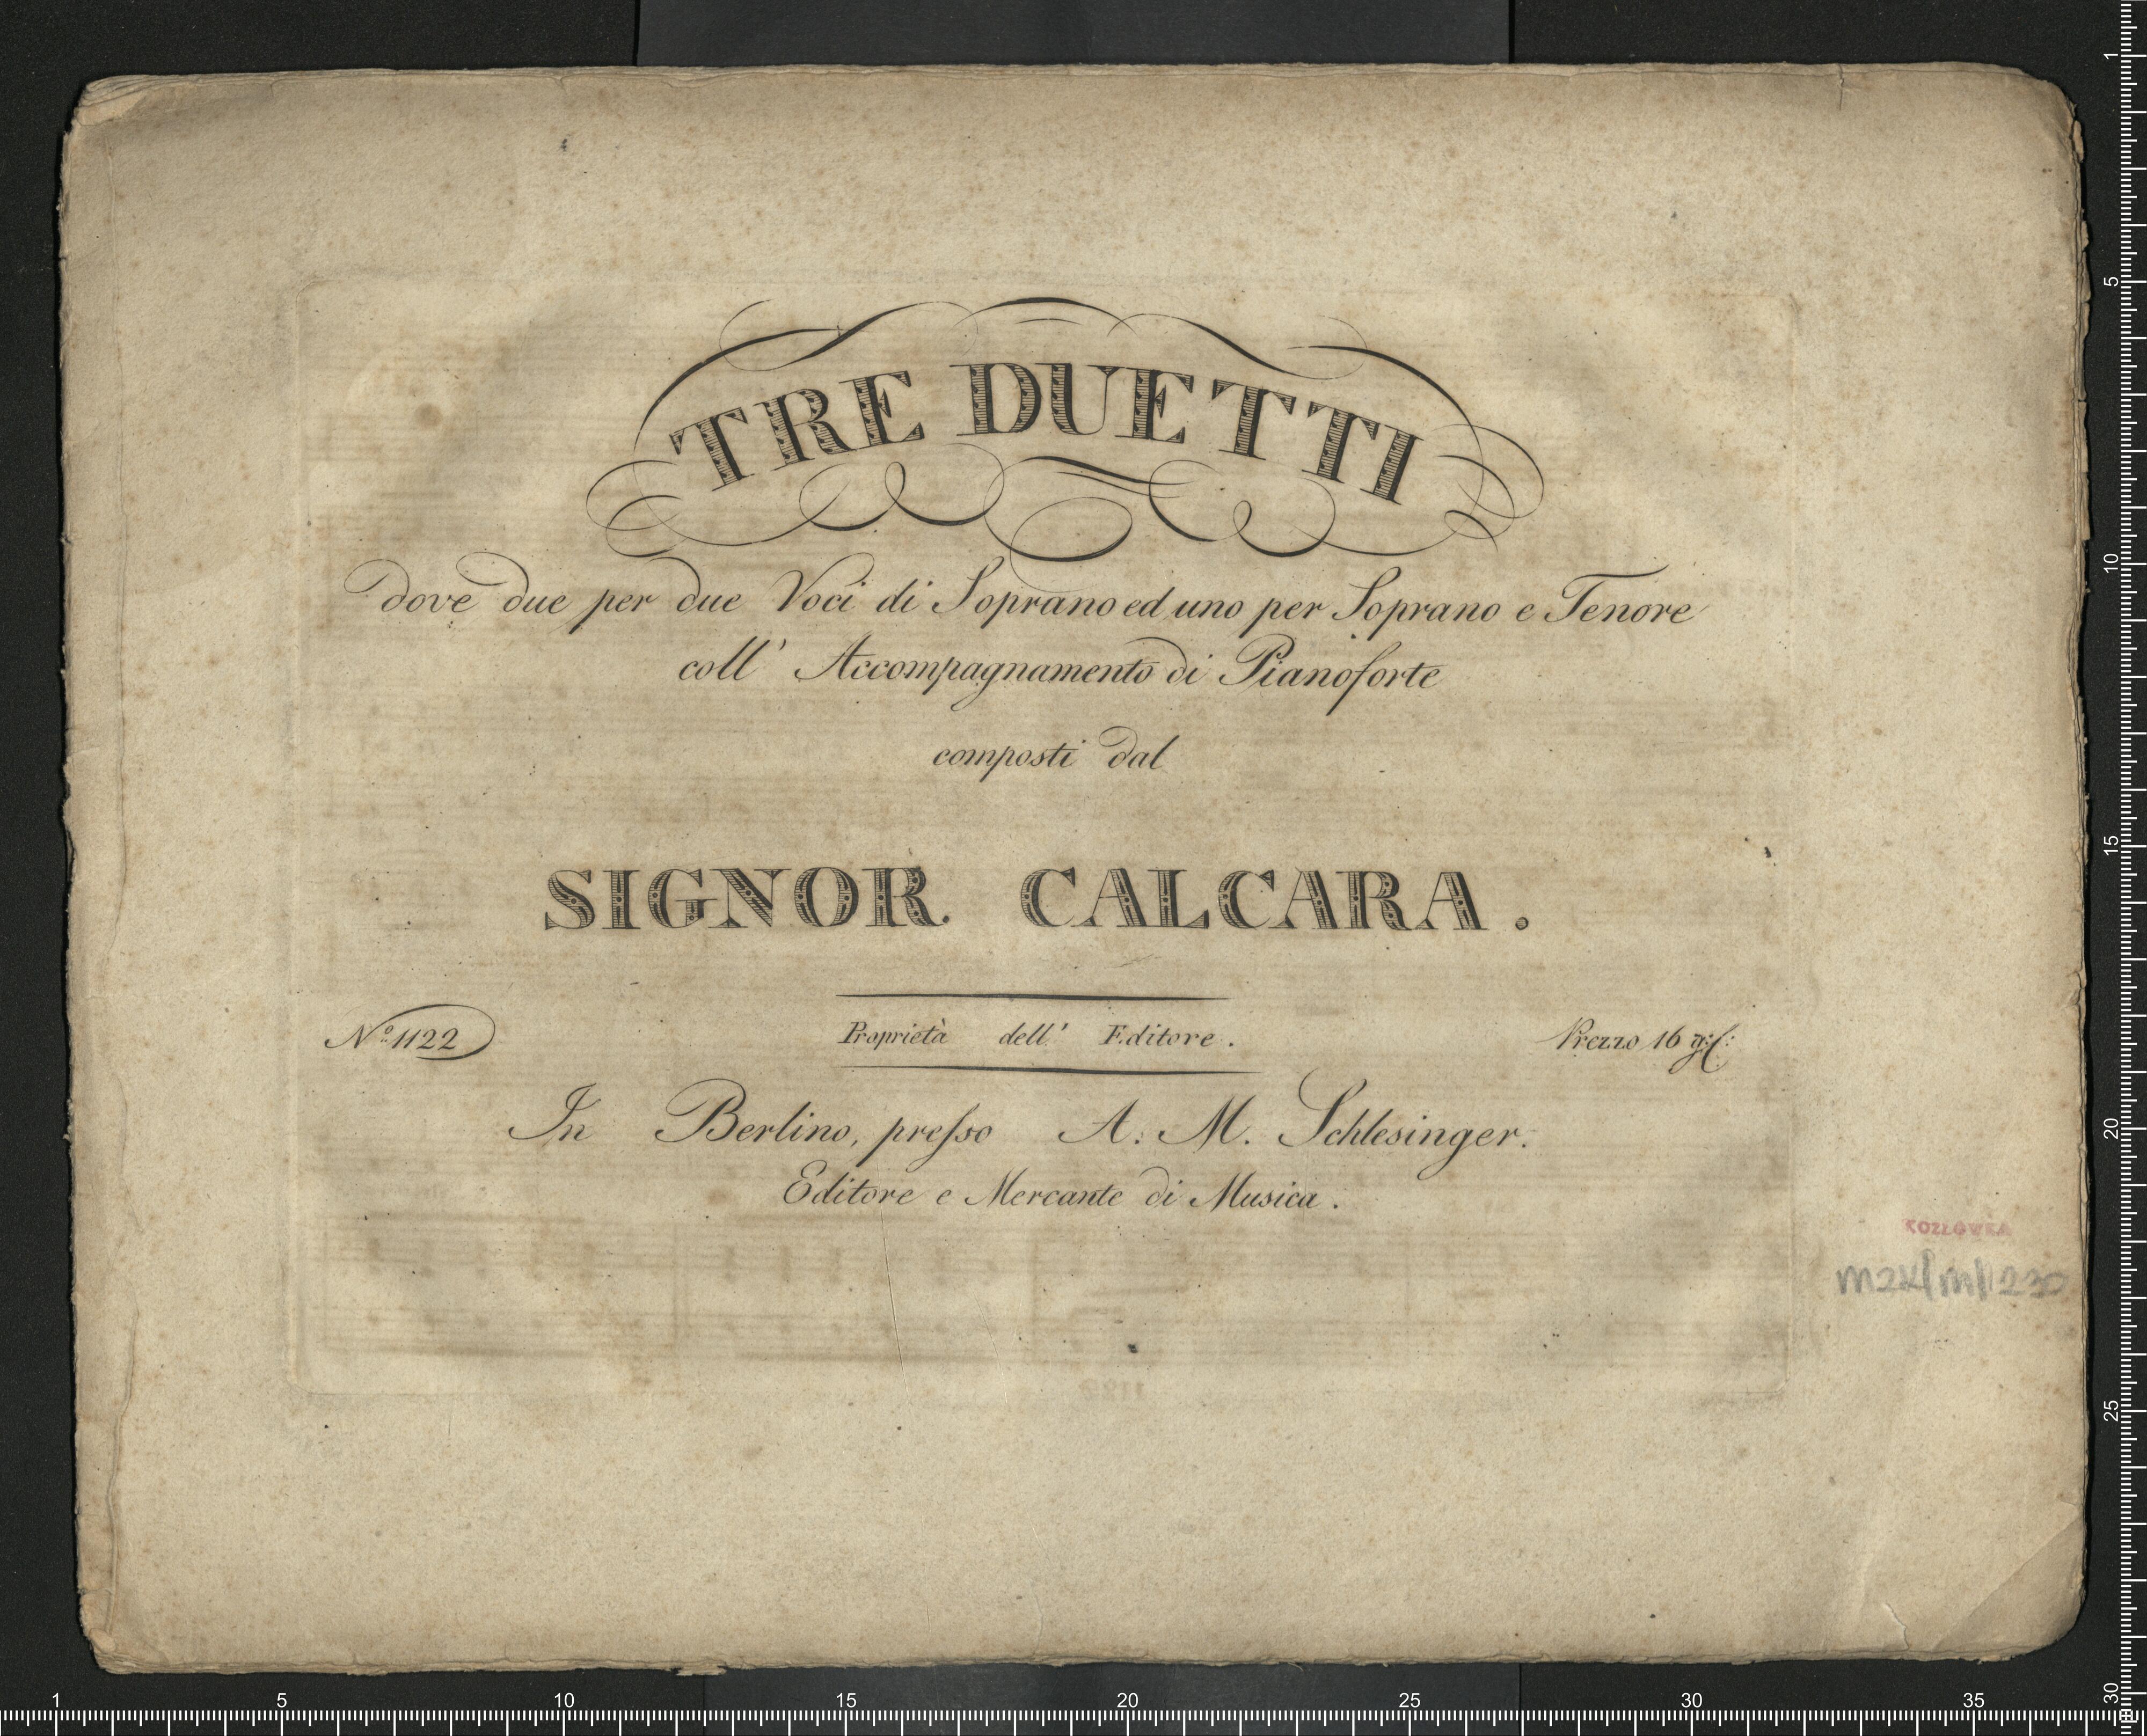 TRE DUETTI
dove due per due Voci di Soprano ed uno per Soprano e Tenore
coll' Accompagnamento di Pianoforte
composti dal
SIGNOR CALCARA.
Nº 1122
Proprietà dell' Editore.
Prezzo 16 gℓ:
In Berlino, preſso A. M. Schlesinger.
Editore e Mercante di Musica.
KOZŁÓWKA
1 5 10 15 20 25 30
1 5 10 15 20 25 30 35